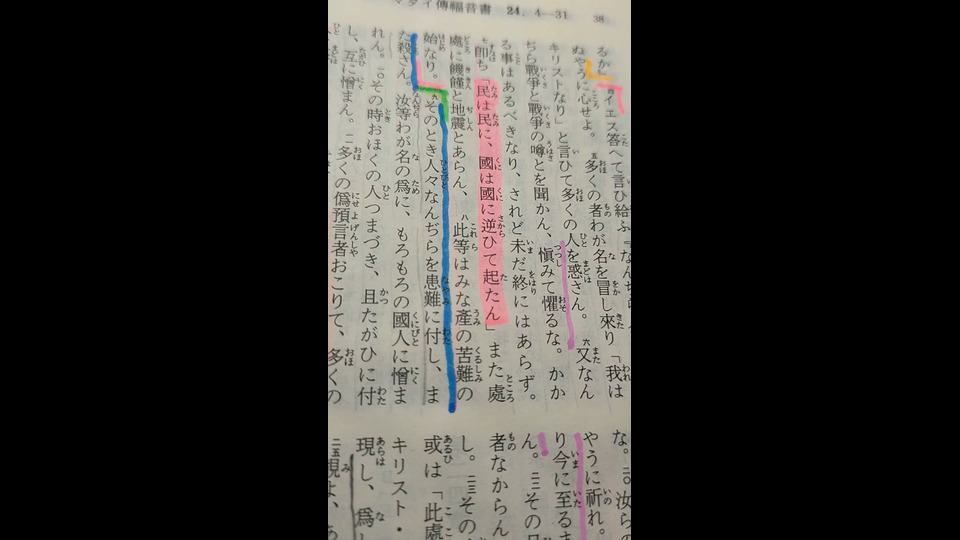 マタイ傳福音書 24. 4—31 38
るか』 四イエス答へて言ひ給ふ『なんぢら
ぬやうに心せよ。 五多くの者わが名を冒し來り「我は
キリストなり」と言ひて多くの人を惑さん。 六又なん
ぢら戰爭と戰爭の噂とを聞かん、愼みて懼るな。かか
る事はあるべきなり、されど未だ終にはあらず。
七即ち「民は民に、國は國に逆ひて起たん」また處
處に饑饉と地震とあらん、 八此等はみな產の苦難の
始なり。 九そのとき人々なんぢらを患難に付し、ま
た殺さん。汝等わが名の爲に、もろもろの國人に憎ま
れん。 一〇その時おほくの人つまづき、且たがひに付
し、互に憎まん。 一一多くの僞預言者おこりて、多くの
な。 二〇汝ら
やうに祈れ。
り今に至るま
ん。 二二その日
者なからん
し。 二三その
或は「此處
キリスト・
現し、爲し
二五視よ、あ